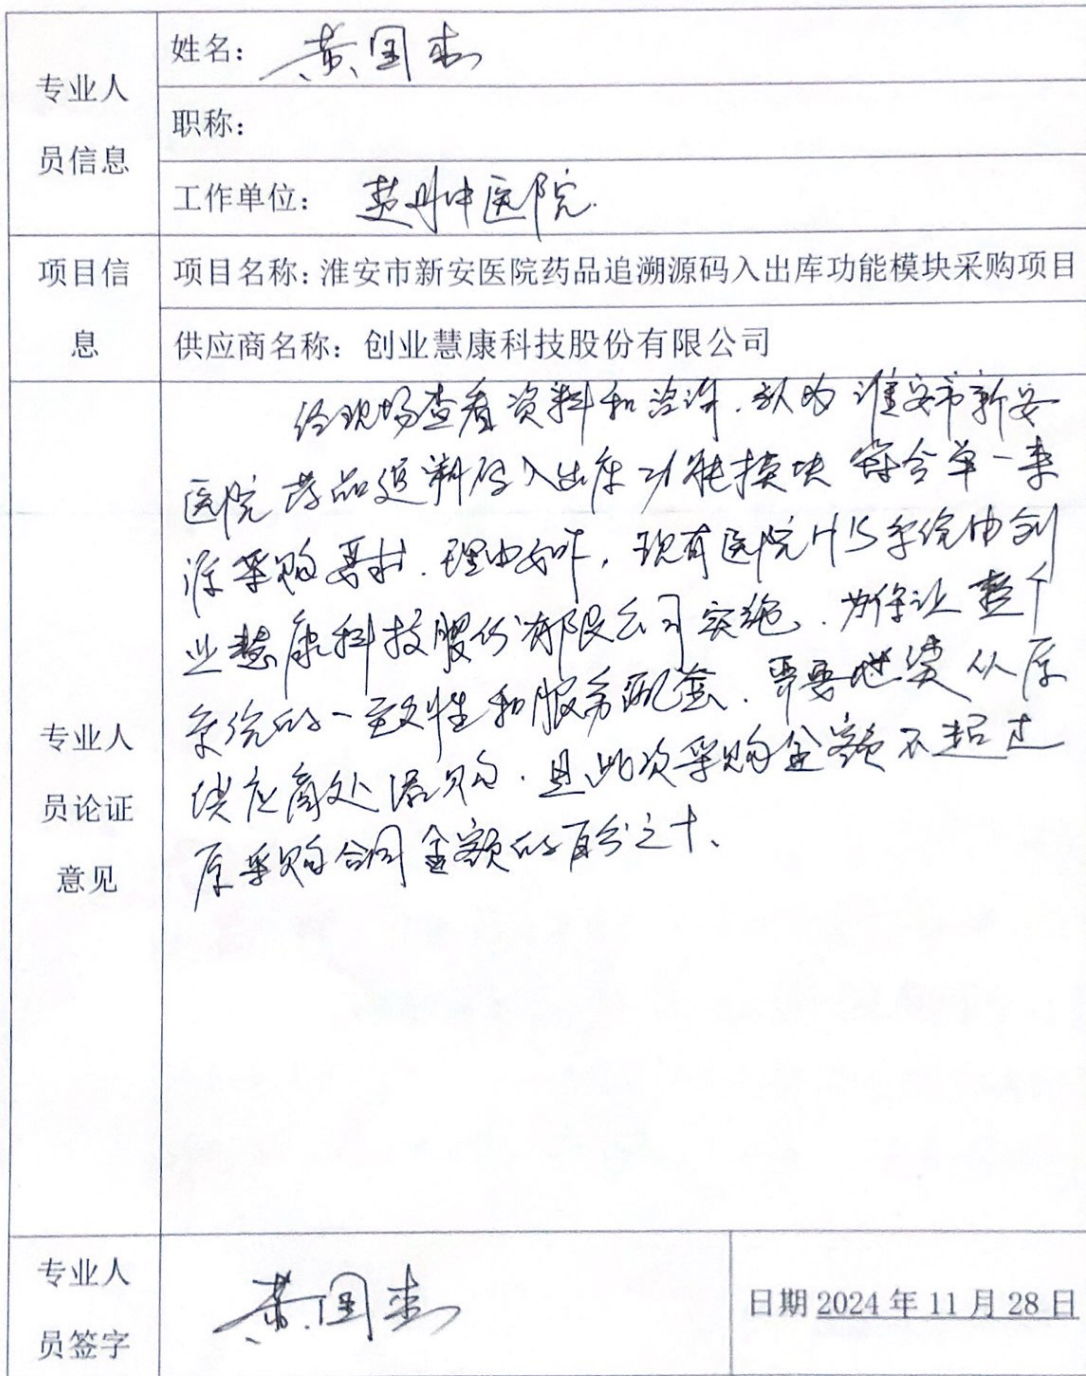 专业人员信息
姓名：黄国志
职称：
工作单位：楚州中医院.
项目信息
项目名称：淮安市新安医院药品追溯源码入出库功能模块采购项目
供应商名称：创业慧康科技股份有限公司
专业人员论证意见
经现场查看资料和洽询，认为淮安市新安
医院药品追溯码入出库功能模块符合单一来
源采购要求．理由如下，现有医院HIS系统由创
业慧康科技股份有限公司实施．为保证整个
系统的一致性和服务配套．需要继续从原
供应商处添购．且此次采购金额不超过
原采购合同金额的百分之十、
专业人员签字
黄国志
日期2024年11月28日